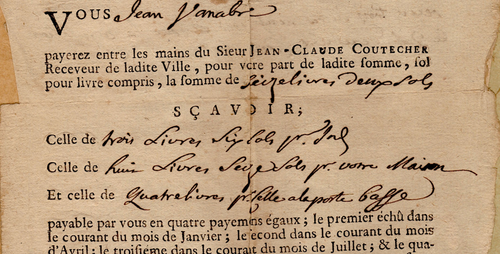 VOUS Jean Vanabre
payerez entre les mains du Sieur JEAN-CLAUDE COUTECHER
Receveur de ladite Ville, pour vôtre part de ladite somme, sol
pour livre compris, la somme de seizelivres deux sols
SÇAVOIR;
Celle de trois Livres Six sols pr.
Celle de huit Livres Seize Sols pr. votre Maison
Et celle de Quatrelivres pr. Celle a la porte basse
payable par vous en quatre payemens égaux; le premier échû dans
le courant du mois de Janvier; le econd dans le courant du mois
d'Avril; le troisiéme dans le courant du mois de Juillet; & le qua-